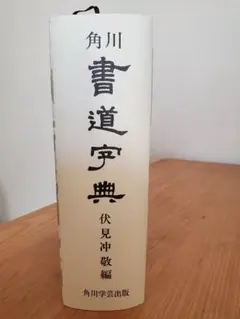 角川
書道字典
伏見冲敬編
角川学芸出版